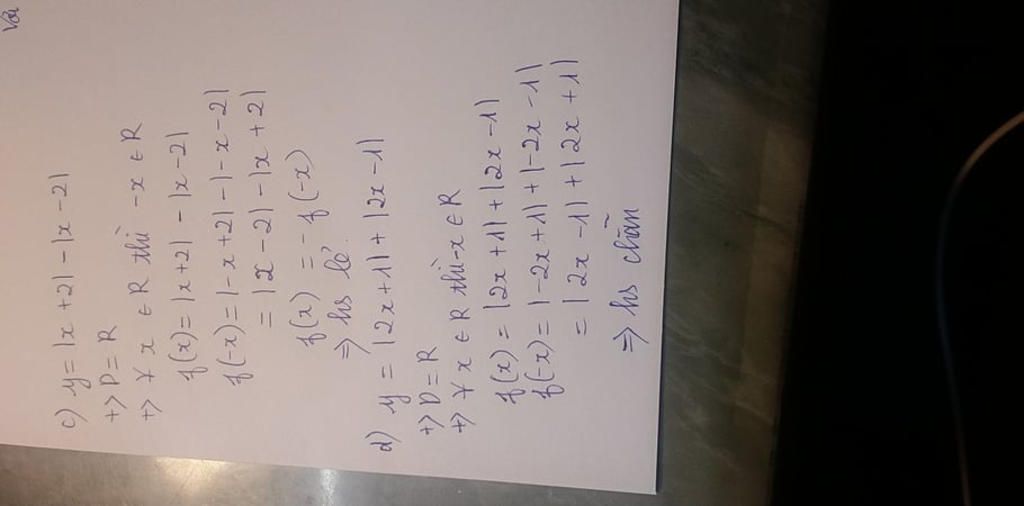 Với
c) y = |x + 2| - |x - 2|
+> D = R
+> ∀ x ∈ R thì -x ∈ R
f(x) = |x + 2| - |x - 2|
f(-x) = |-x + 2| - |-x - 2|
= |x - 2| - |x + 2|
f(x) = -f(-x)
=> hs lẻ.
d) y = |2x + 1| + |2x - 1|
+> D = R
+> ∀ x ∈ R thì -x ∈ R
f(x) = |2x + 1| + |2x - 1|
f(-x) = |-2x + 1| + |-2x - 1|
= |2x - 1| + |2x + 1|
=> hs chẵn